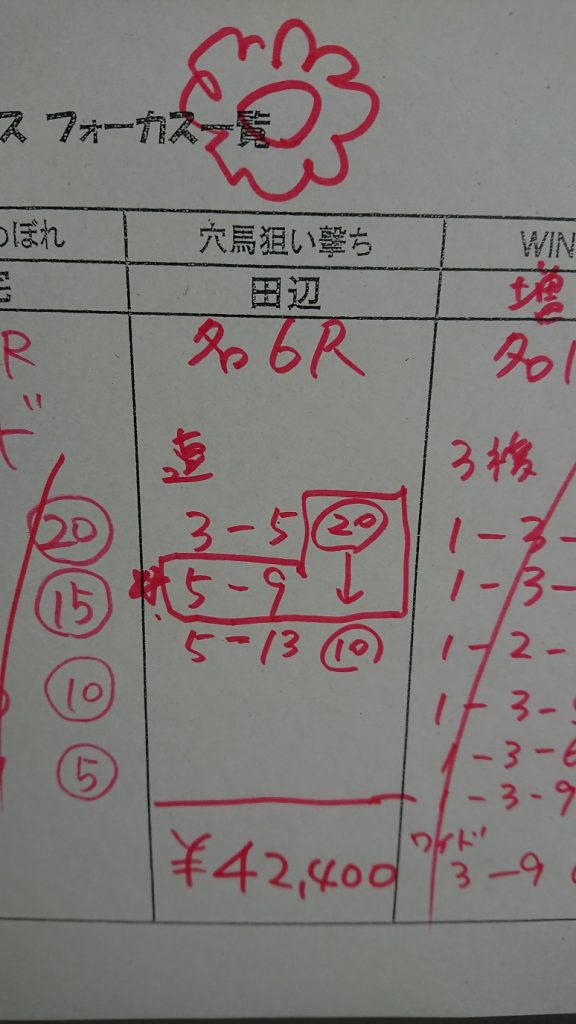 ス フォーカス一覧
のぼれ
穴馬狙い撃ち
WIN
宅
田辺
増
R
名6R
名1
ド
連
3複
⑳
3-5 ⑳
1-3-
⑮
5-9 ↓
1-3-
5-13 ⑩
1-2-
⑩
1-3-
⑤
1-3-6
1-3-9
¥42,400
ワイド
3-9